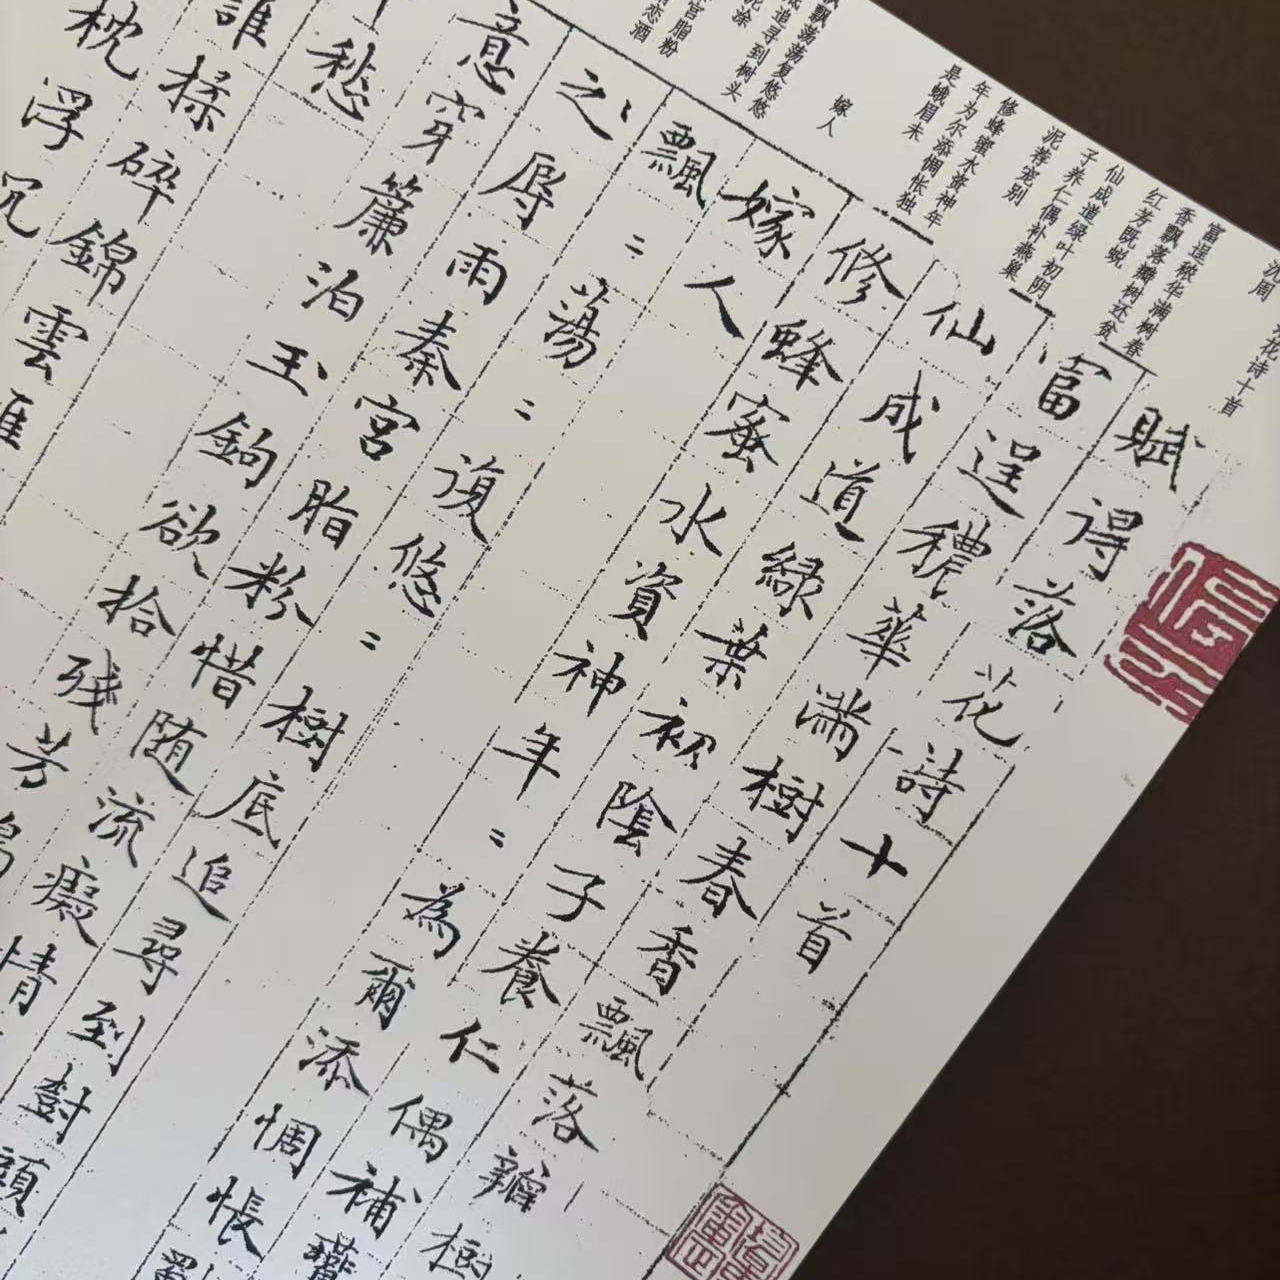 花诗十首
富逞秾华满树春
香飘落瓣树还贫
红芳既蜕
仙成道绿叶初阴
子养仁偶补燕巢
泥荐宠别
修蜂蜜水资神年
年为尔添惆怅独
是蛾眉未
嫁人
飘荡荡复悠悠
追寻到树头
宫脂粉
恋酒
賦得落花詩十首
富逞穠華滿樹春香飄落瓣樹
仙成道綠葉初陰子養仁偶補
修蜂蜜水資神年=為爾添惆悵
嫁人
飄=蕩=復悠=樹底追尋到樹頭
之辱雨秦宮脂粉惜随流癡情
意穿簾泊玉鉤欲拾殘芳
愁
誰揉碎錦雲
枕浮沉